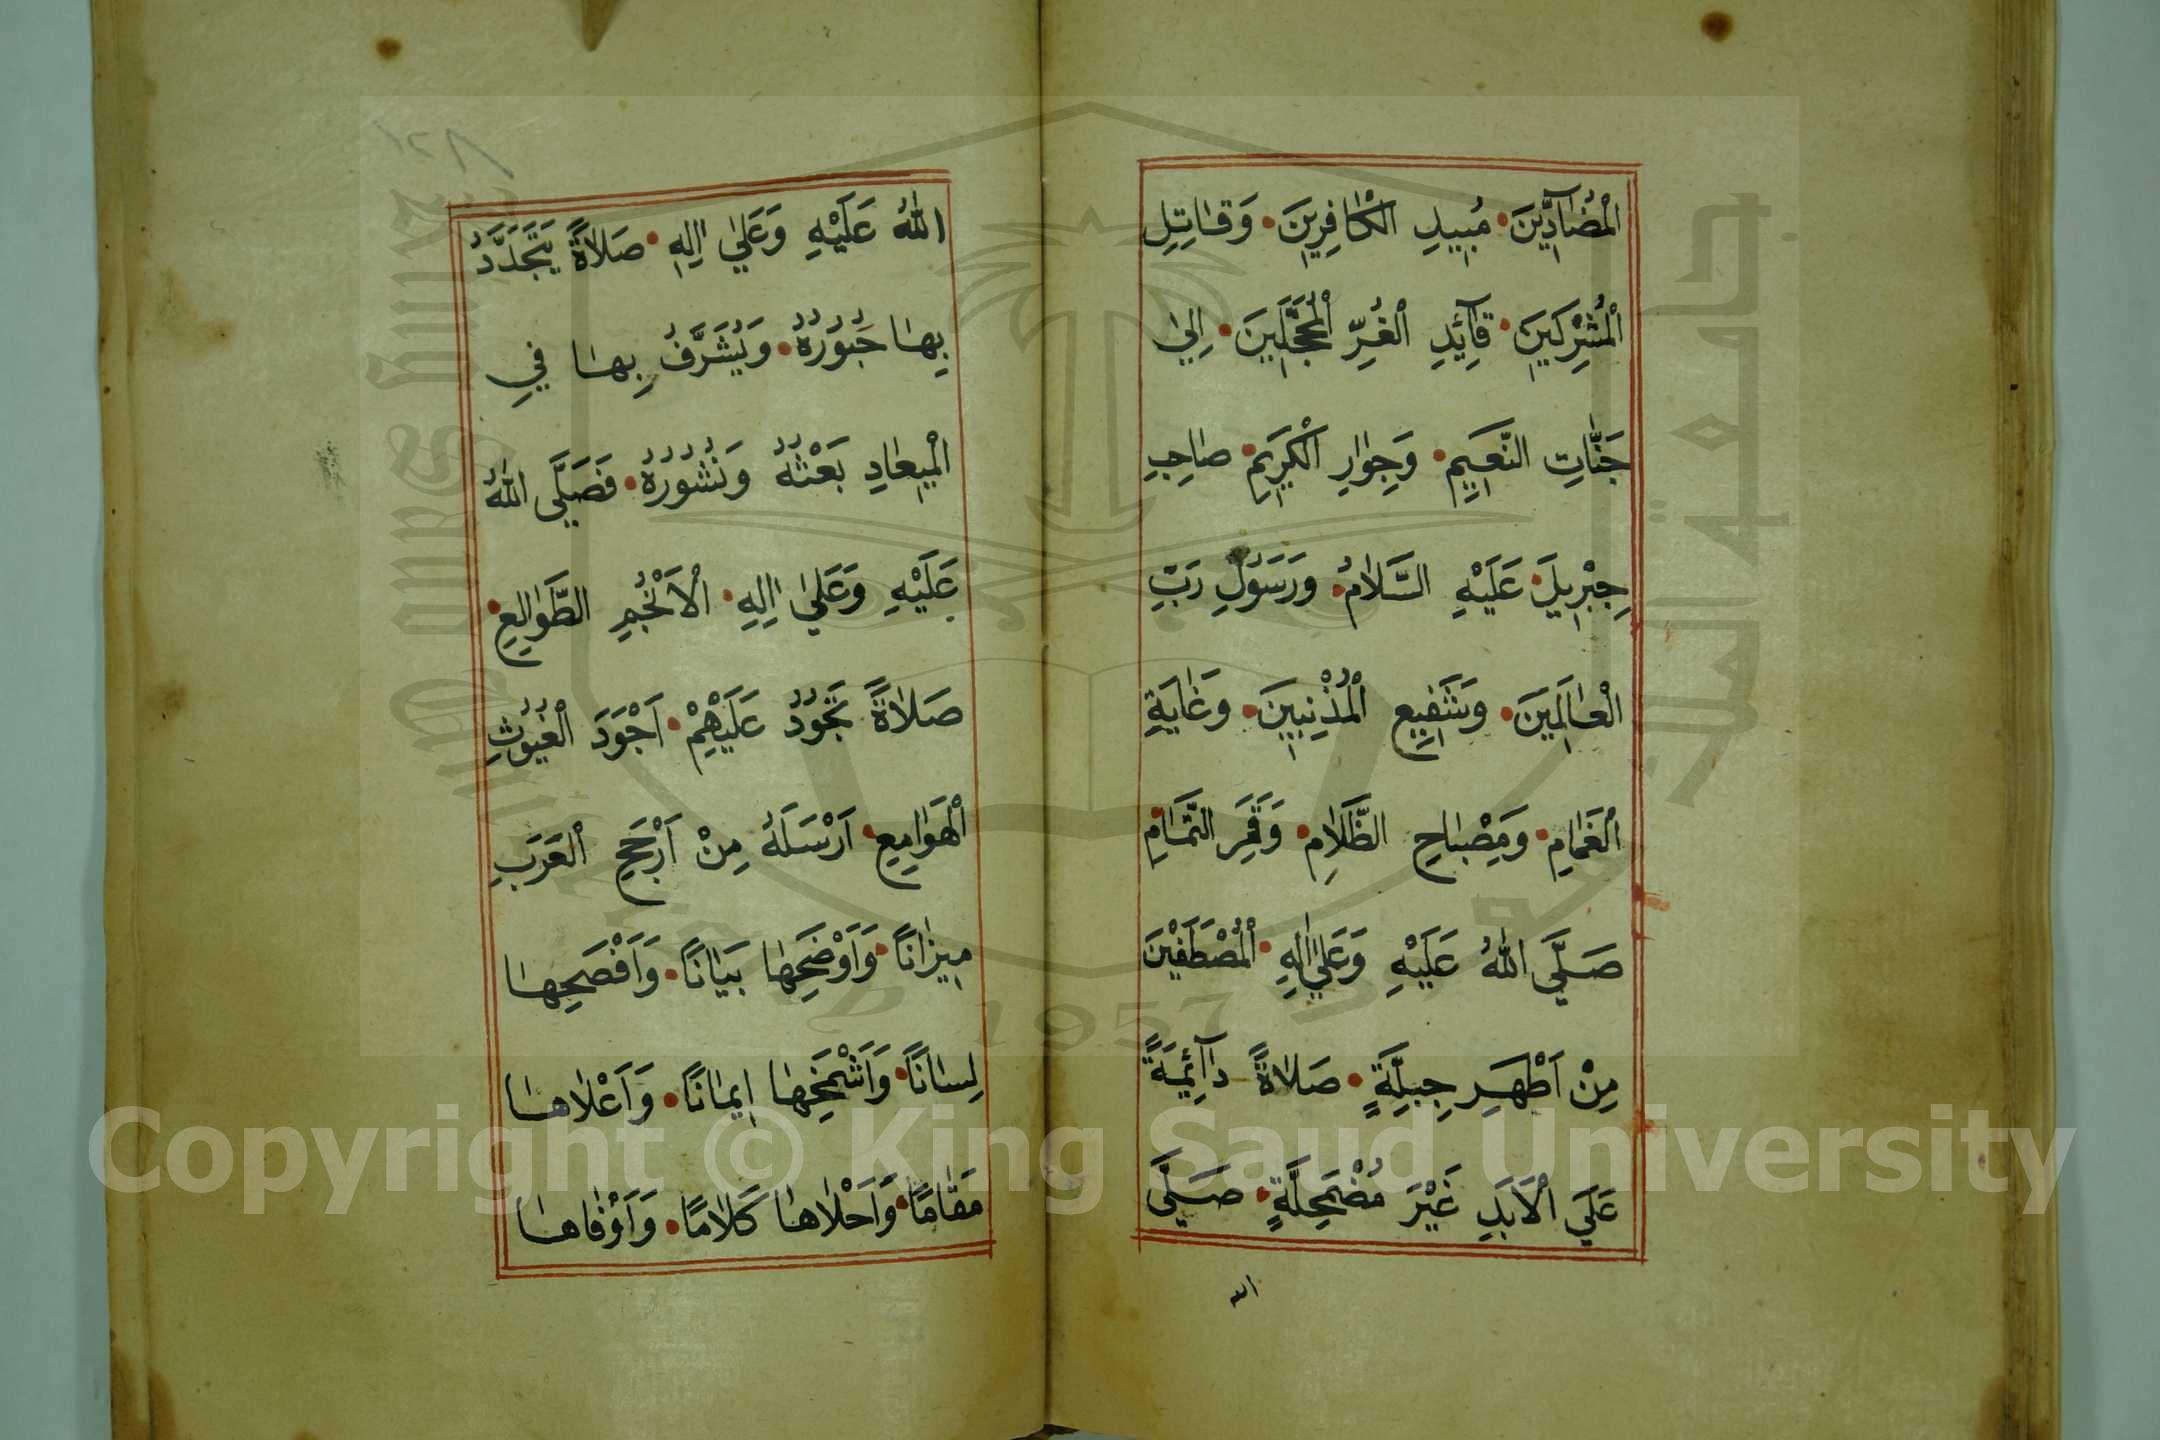 الْمُضَادِّينَ • مُبِيدِ الْكَافِرِينَ • وَقَاتِلِ
الْمُشْرِكِينَ • قَآئِدِ الْغُرِّ الْمُحَجَّلِينَ • اِلٰي
جَنَّاتِ النَّعِيمِ • وَجِوَارِ الْكَرِيمِ • صَاحِبِ
جِبْرِيلَ • عَلَيْهِ السَّلَامُ • وَرَسُولِ رَبِّ
الْعَالَمِينَ • وَشَفِيعِ الْمُذْنِبِينَ • وَغَايَةِ
الْغَمَامِ • وَمِصْبَاحِ الظَّلَامِ • وَقَمَرِ التَّمَامِ •
صَلَّي اللهُ عَلَيْهِ وَعَلٰي اٰلِهِ • الْمُصْطَفَيْنَ
مِنْ اَطْهَرِ جِبِلَّةٍ • صَلَاةً دَآئِمَةً
عَلَي الْاَبَدِ غَيْرَ مُضْمَحِلَّةٍ • صَلَّي
الله
اللهُ عَلَيْهِ وَعَلٰي اٰلِهِ • صَلَاةً يَتَجَدَّدُ
بِهَا حُبُورُهُ • وَيُشَرَّفُ بِهَا فِي
الْمِيعَادِ بَعْثُهُ وَنُشُورُهُ • فَصَلَّى اللهُ
عَلَيْهِ وَعَلٰي اٰلِهِ • الْاَنْجُمِ الطَّوَالِعِ •
صَلَاةً تَجُودُ عَلَيْهِمْ • اَجْوَدَ الْغُيُوثِ
الْهَوَامِعِ • اَرْسَلَهُ مِنْ اَرْجَحِ الْعَرَبِ
مِيزَانًا • وَاَوْضَحِهَا بَيَانًا • وَاَفْصَحِهَا
لِسَانًا • وَاَشْمَخِهَا اِيمَانًا • وَاَعْلَاهَا
مَقَامًا • وَاَحْلَاهَا كَلَامًا • وَاَوْفَاهَا
1957
Copyright © King Saud University